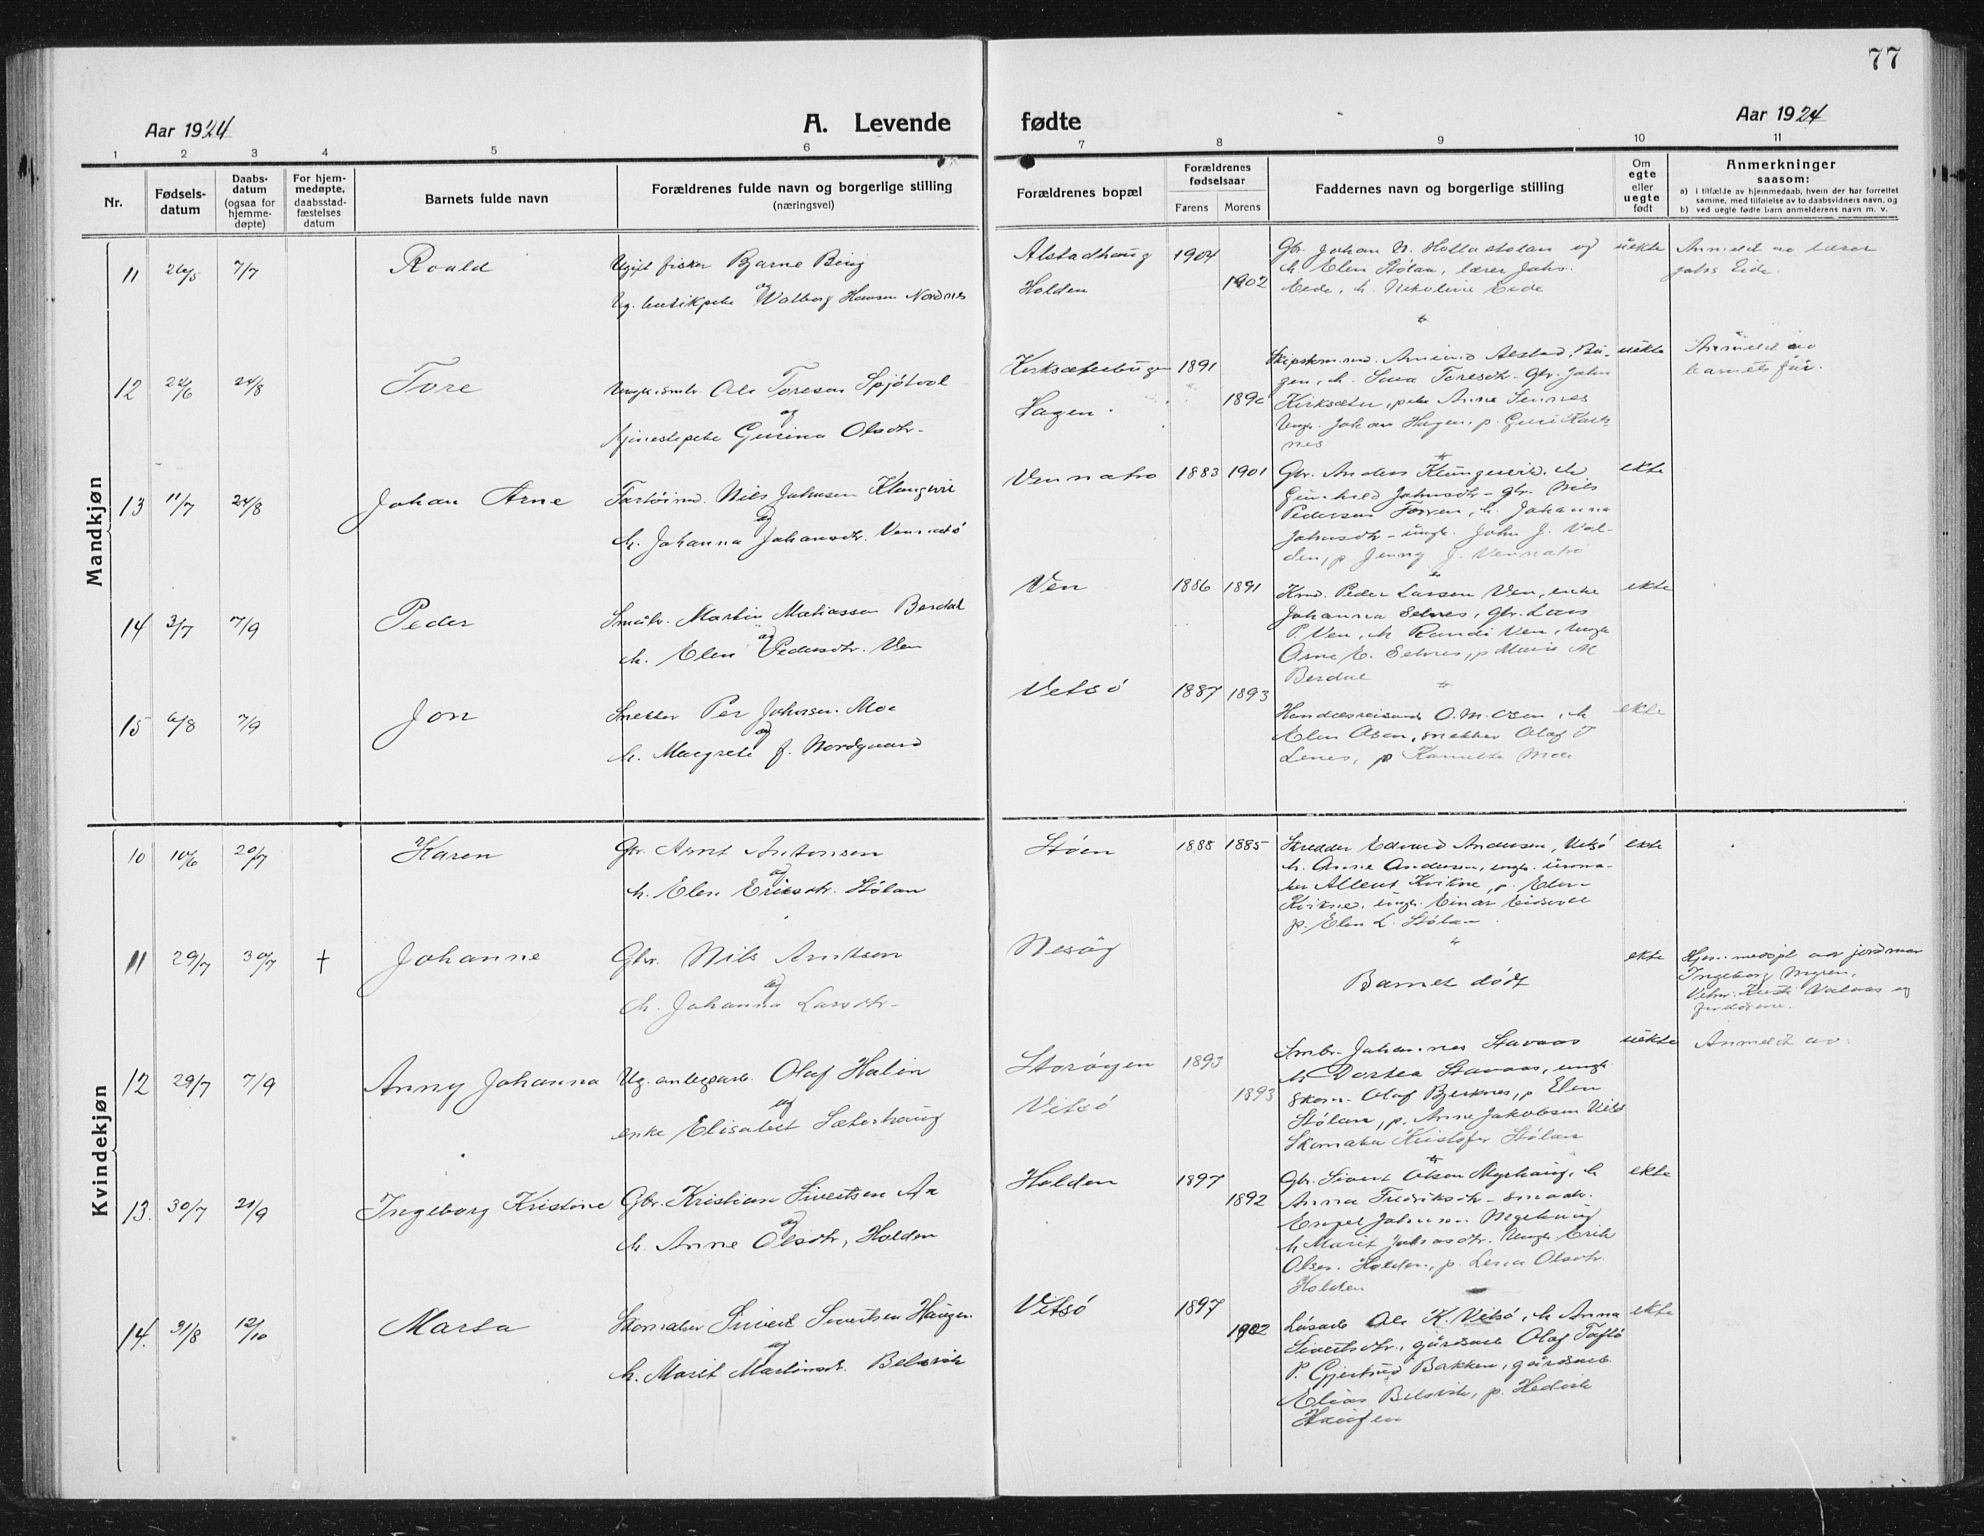 77
Aar 1924
A. Levende
fødte
Aar 1924
1 2 3 4 5 6 7 8 9 10 11
Nr.
Fødsels-
datum
Daabs-
datum
(ogsaa for
hjemme-
døpte)
For hjem-
medøpte,
daabsstad-
fæstelses
datum
Barnets fulde navn
Forældrenes fulde navn og borgerlige stilling
(næringsvei)
Forældrenes bopæl
Forældrenes
fødselsaar
Farens Morens
Faddernes navn og borgerlige stilling
Om
egte
eller
uegte
født
Anmerkninger
saasom:
a) i tilfælde av hjemmedaab, hvem der har forrettet
samme, med tilføielse av to daabsvidners navn, og
b) ved uegte fødte barn anmelderens navn m. v.
Mandkjøn
11 26/5 7/7 Roald
Ugift fisker Bjarne Bing
og
Valborg Hansen Nordnes
Alstadhaug 1904
Holden 1902
Gbr. Johan N. og
h. Elen Stølan, lærer Johs.
Eide, h. Nikoline Eide
uekte
Anmeldt av lærer
Johs Eide.
12 22/6 24/8 Tore
Ole Toresen Spjötvol
og
tjenestepike Gurina Olsdtr.
Kirksæterbugen 1891
Hagen
gen, h.
Kirksæter, pike Anna
Ungk. Johan Hagen, p. Guri
nes
uekte
Anmeldt av
barnets far.
13 11/7 24/8 Johan Arne
Nils Johnsen
og
h. Johanna Johansdtr. Vennatrö
Vennatrö 1883 1901
Gbr. Anders h.
Gunhild Johnsdtr - gbr. Nils
Pedersen h. Johanna
Johnsdtr - ungk. John J.
p. Jenny J. Vennatrö
ekte
14 3/7 7/9 Peder
Småbr. Martin Matiassen Berdal
og
h. Elen Pedersdtr. Ven
Ven 1886 1891
Peder Larsen Ven, enke
Johanna Selnes, Gbr. Lars
P. Ven, h. Randi Ven, Ungk.
Arne E. Selnes, p. Marie M
Berdal
ekte
15 6/8 7/9 Jon
Snekker Per Johnsen Moe
og
h. Margrete f. Nordgaard
Vitsö 1887 1893
Handelsreisende O. M. Osen, h.
Elen Osen, snekker Olaf
Lenes, p. Moe
ekte
Kvindekjøn
10 10/6 20/7 Karen
Gbr. Arnt Antonsen
og
h. Elen Eriksdtr. Stölan
Stöen 1888 1885
Skredder Edvard Andersen, Vitsö
h. Anne Andersen, ungk. urma-
ker Albert Kvikne, p. Elen
Kvikne, ungk. Einar
p. Elen L. Stölan
ekte
11 29/7 30/7 † Johanne
Gbr. Nils Arntsen
og
h. Johanna Larsdtr.
Nesög
Barnet dödt
ekte
Hjem. av jordmor
Ingeborg Myren,
12 29/7 7/9 Anny Johanna
Ug. anlegsarb. Olaf Halin
og
enke Elisabet Sæterhaug
Storögen 1893
Vitsö 1893
Smbr. Johannes Stavaas
h. Dortea Stavaas, ungk.
skom. Olaf Bjerknes, p. Elen
Stölan, p. Anne Jakobsen Vitsö
Skomaker Kristofer Stölan
uekte
Anmeldt av
13. 30/7 21/9 Ingeborg Kristine
Gbr. Kristian Sivertsen Aa
og
h. Anne Olsdtr, Holden
Holden 1897
1892
Gbr. Sivert Olsen Myrhaug, h.
Anna Fredriksdtr - smaabr.
Engel Johnsen Myrhaug
h. Marit Johnsdtr. Ungk. Erik
Olsen Holden, p. Lena Olsdtr.
Holden
ekte
14. 31/8 12/10 Marta
Skomaker Sivert Sivertsen Haugen
og
h. Marit Martinsdtr. Belsvik
Vitsö 1897
1902
Løsarb. Ole K. Vitsö, h. Anna
Sivertsdtr., gårdsarb. Olaf Taftö
P. Gjertrud Bakken, gårdsarb.
Elias Belsvik, p. Hedvik
Haugen
ekte